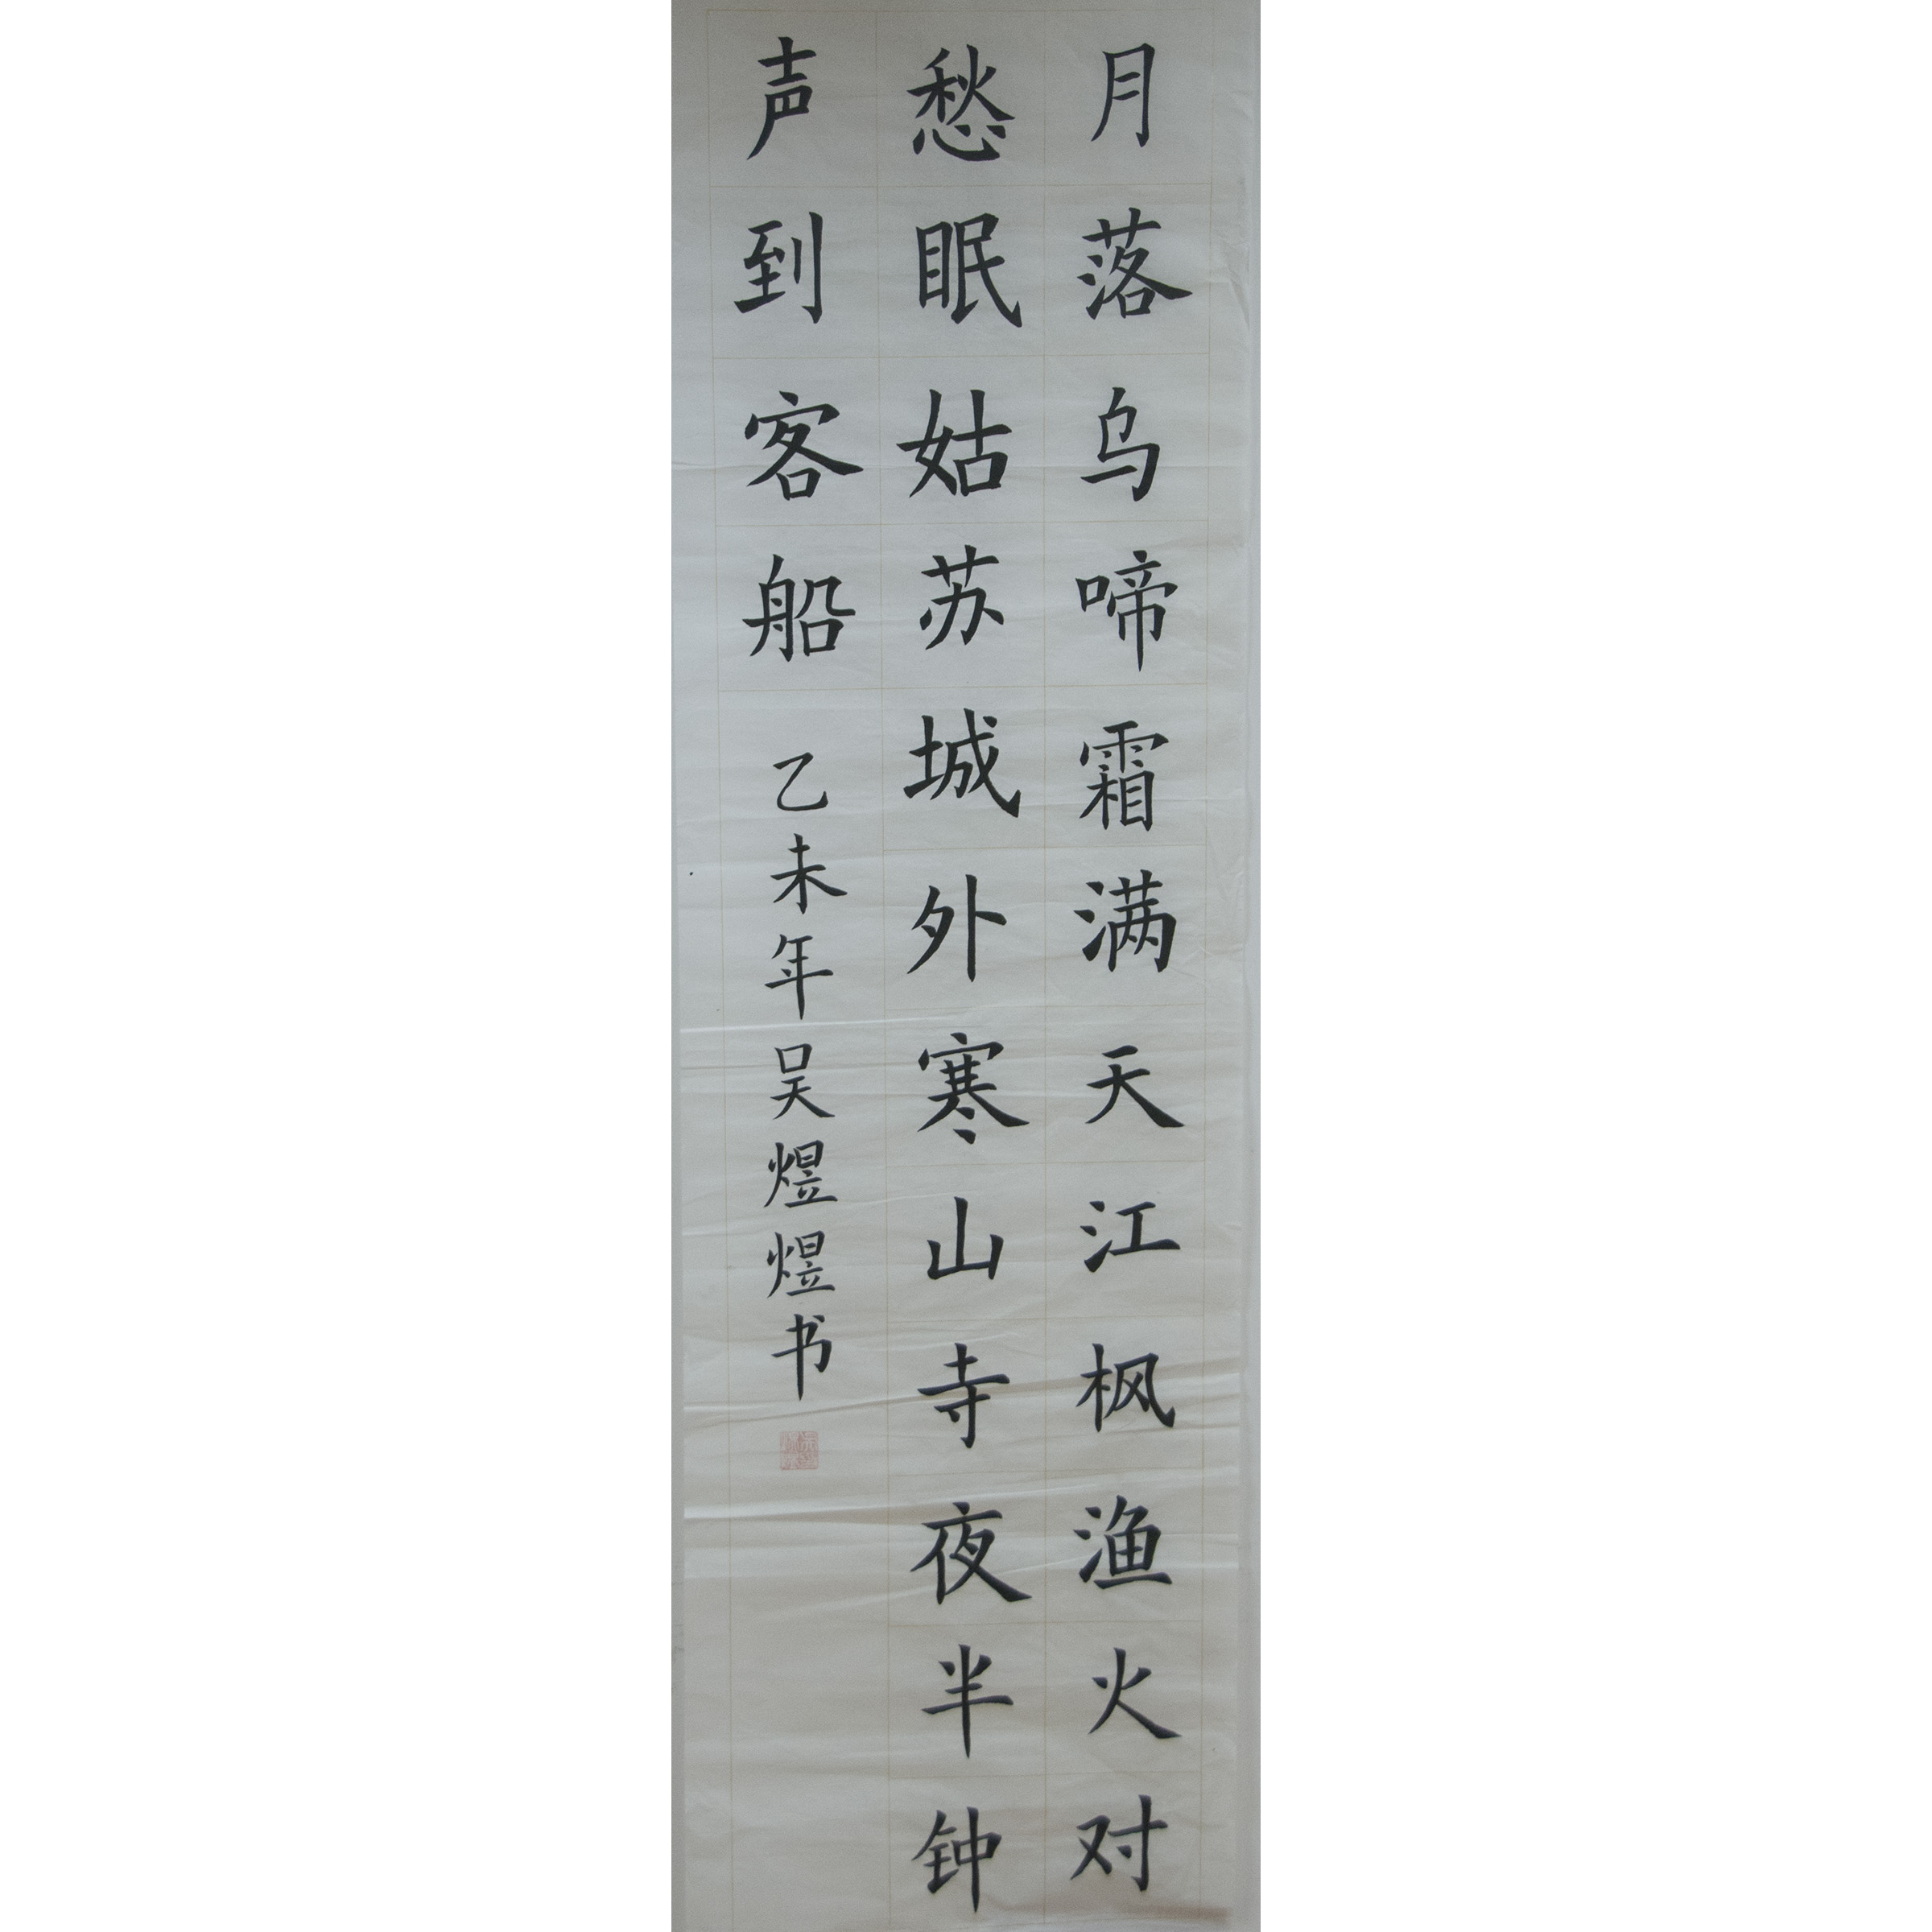 月落乌啼霜满天江枫渔火对
愁眠姑苏城外寒山寺夜半钟
声到客船 乙未年吴煜煜书